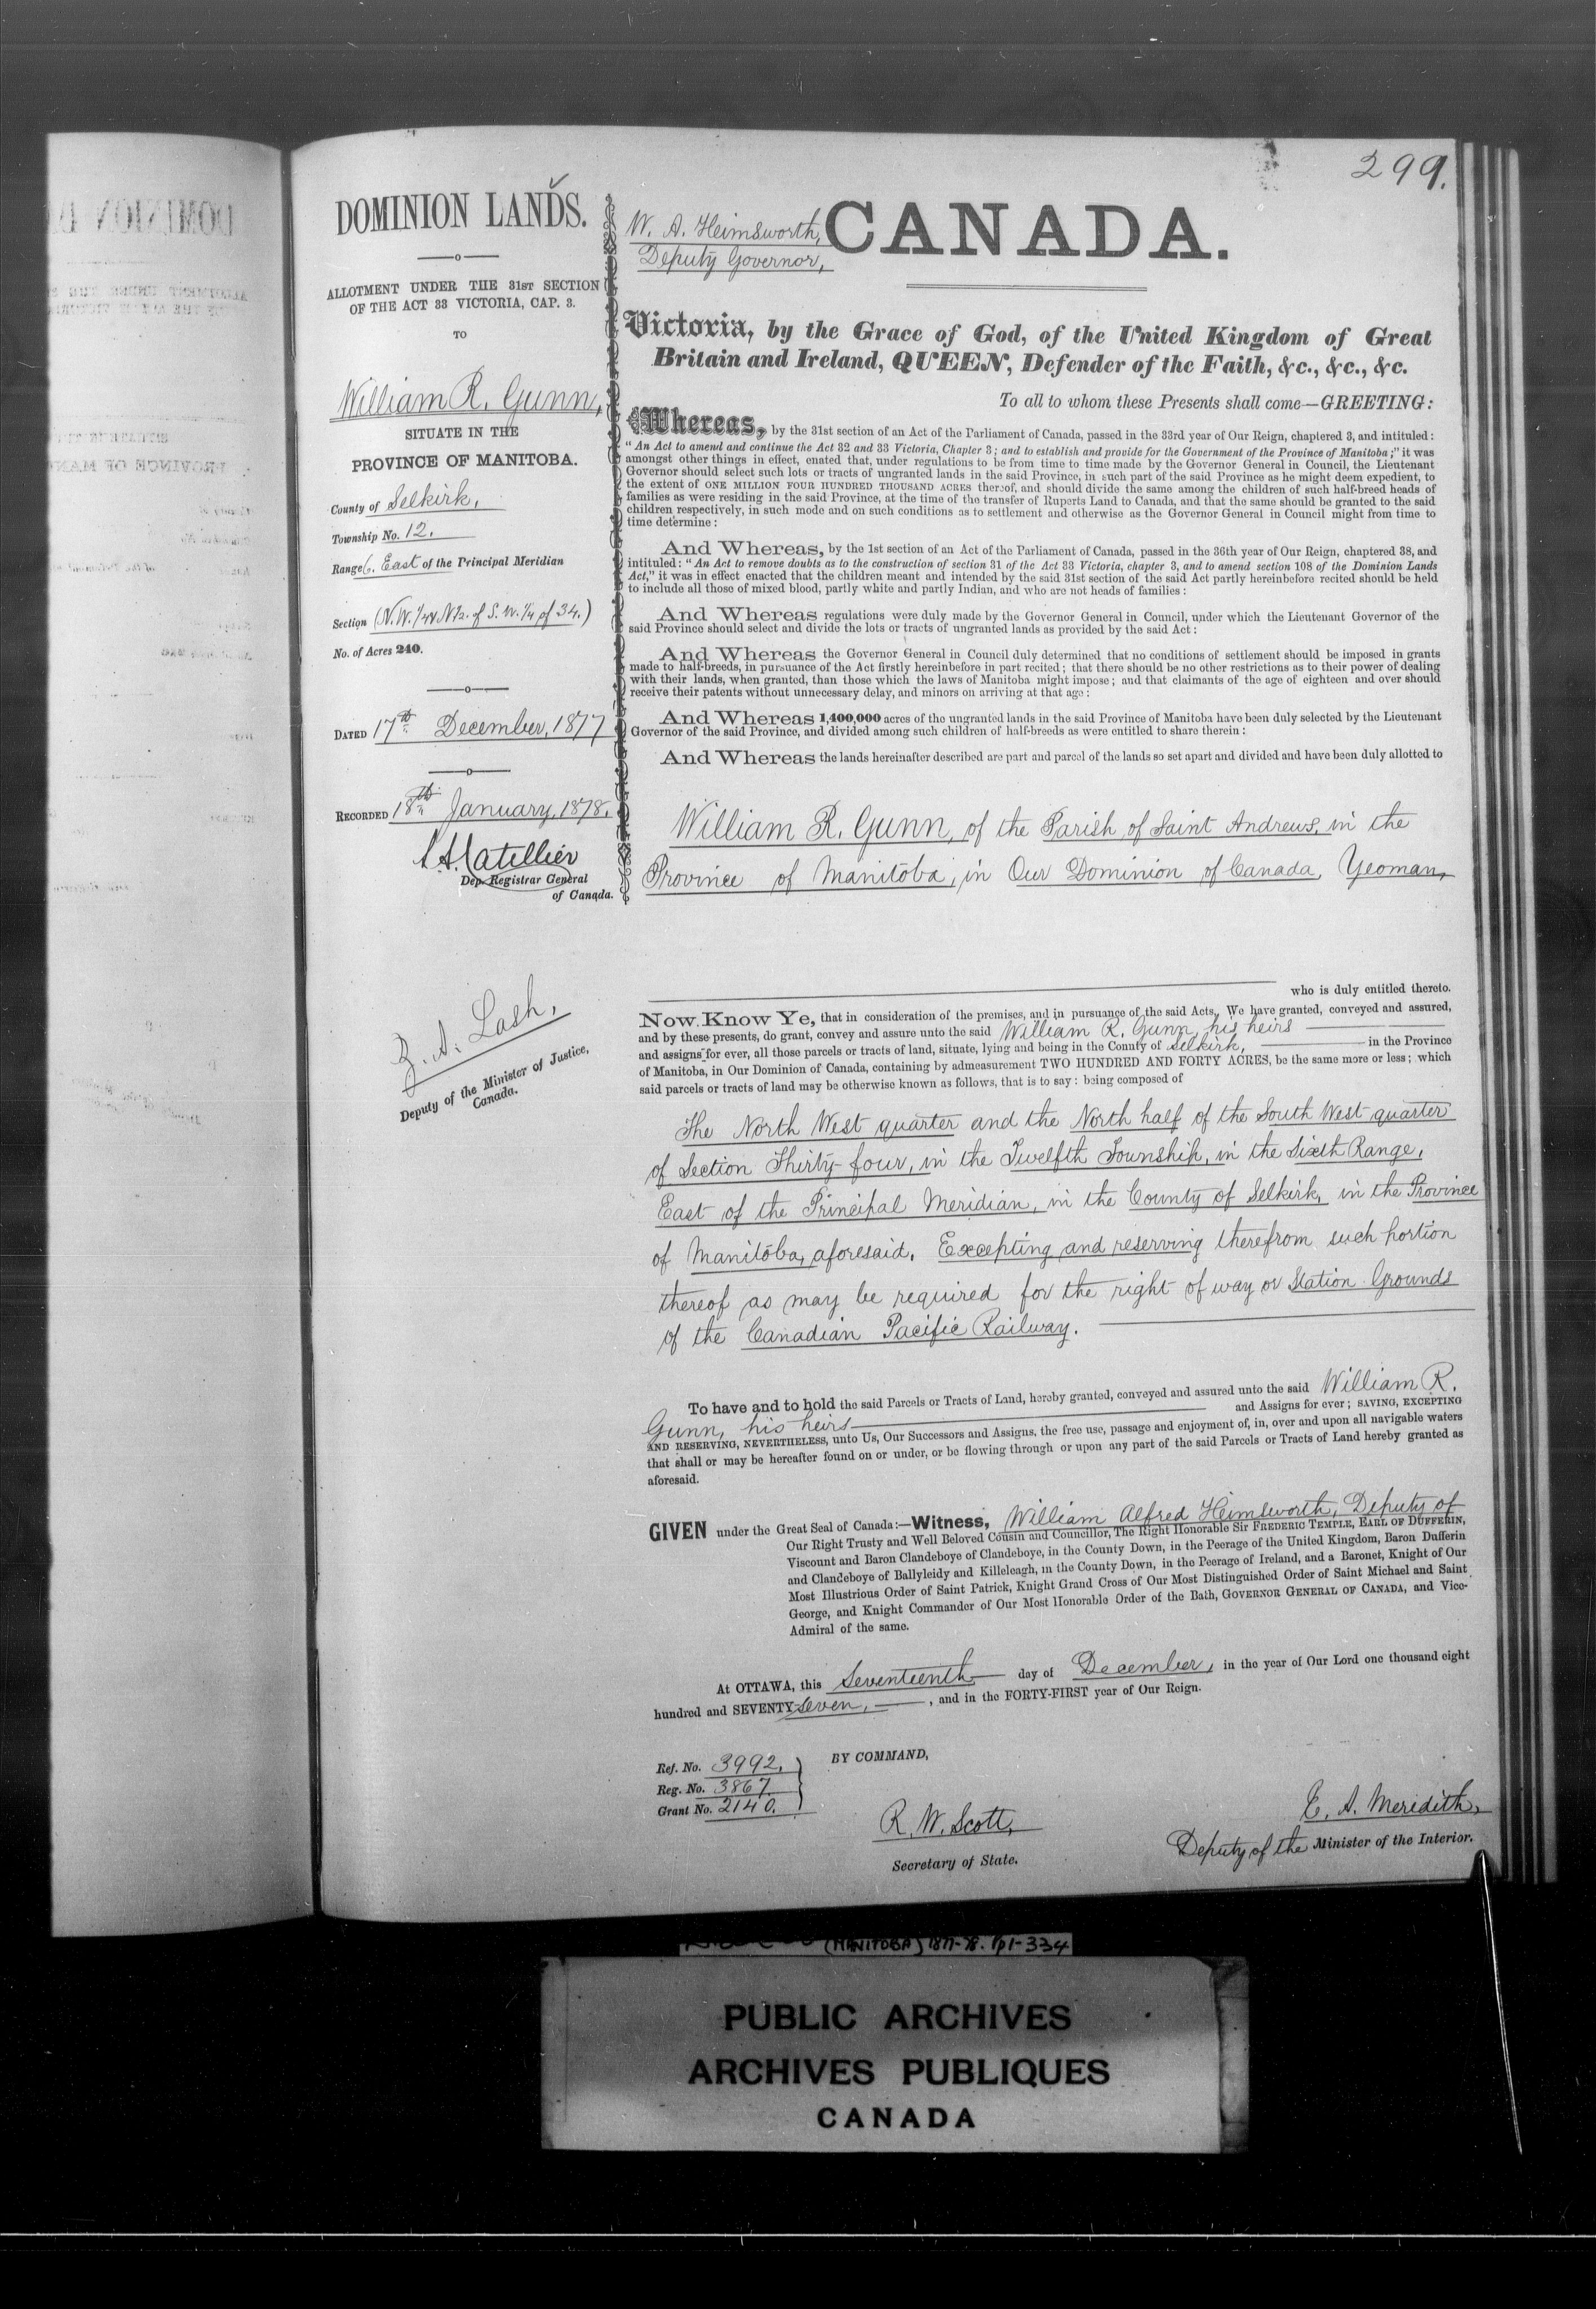 299.
DOMINION LANDS.
ALLOTMENT UNDER THE 31ST SECTION
OF THE ACT 33 VICTORIA, CAP. 3.
TO
William R. Gunn,
SITUATE IN THE
PROVINCE OF MANITOBA.
County of Selkirk,
Township No. 12.
Range 6. East of the Principal Meridian
Section (N.W. 1/4 & N 1/2. of S. W. 1/4 of 34.)
No. of Acres 240.
DATED 17th December, 1877
RECORDED 18th January, 1878.
Dep. Registrar General
of Canada.
Z. A. Lash,
Deputy of the Minister of Justice,
Canada.
W. A. Heimsworth,
Deputy Governor,
CANADA.
Victoria, by the Grace of God, of the United Kingdom of Great
Britain and Ireland, QUEEN, Defender of the Faith, &c., &c., &c.
To all to whom these Presents shall come—GREETING:
Whereas, by the 31st section of an Act of the Parliament of Canada, passed in the 33rd year of Our Reign, chaptered 3, and intituled:
"An Act to amend and continue the Act 32 and 33 Victoria, Chapter 3; and to establish and provide for the Government of the Province of Manitoba;" it was
amongst other things in effect, enated that, under regulations to be from time to time made by the Governor General in Council, the Lieutenant
Governor should select such lots or tracts of ungranted lands in the said Province, in such part of the said Province as he might deem expedient, to
the extent of ONE MILLION FOUR HUNDRED THOUSAND ACRES thereof, and should divide the same among the children of such half-breed heads of
families as were residing in the said Province, at the time of the transfer of Ruperts Land to Canada, and that the same should be granted to the said
children respectively, in such mode and on such conditions as to settlement and otherwise as the Governor General in Council might from time to
time determine:
And Whereas, by the 1st section of an Act of the Parliament of Canada, passed in the 36th year of Our Reign, chaptered 38, and
intituled: "An Act to remove doubts as to the construction of section 31 of the Act 33 Victoria, chapter 3, and to amend section 108 of the Dominion Lands
Act," it was in effect enacted that the children meant and intended by the said 31st section of the said Act partly hereinbefore recited should be held
to include all those of mixed blood, partly white and partly Indian, and who are not heads of families:
And Whereas regulations were duly made by the Governor General in Council, under which the Lieutenant Governor of the
said Province should select and divide the lots or tracts of ungranted lands as provided by the said Act:
And Whereas the Governor General in Council duly determined that no conditions of settlement should be imposed in grants
made to half-breeds, in pursuance of the Act firstly hereinbefore in part recited; that there should be no other restrictions as to their power of dealing
with their lands, when granted, than those which the laws of Manitoba might impose; and that claimants of the age of eighteen and over should
receive their patents without unnecessary delay, and minors on arriving at that age:
And Whereas 1,400,000 acres of the ungranted lands in the said Province of Manitoba have been duly selected by the Lieutenant
Governor of the said Province, and divided among such children of half-breeds as were entitled to share therein:
And Whereas the lands hereinafter described are part and parcel of the lands so set apart and divided and have been duly allotted to
William R. Gunn, of the Parish of Saint Andrews, in the
Province of Manitoba, in Our Dominion of Canada, Yeoman,
who is duly entitled thereto.
Now Know Ye, that in consideration of the premises, and in pursuance of the said Acts, We have granted, conveyed and assured,
and by these presents, do grant, convey and assure unto the said William R. Gunn, his heirs
and assigns for ever, all those parcels or tracts of land, situate, lying and being in the County of Selkirk, in the Province
of Manitoba, in Our Dominion of Canada, containing by admeasurement TWO HUNDRED AND FORTY ACRES, be the same more or less; which
said parcels or tracts of land may be otherwise known as follows, that is to say: being composed of
The North West quarter and the North half of the South West quarter
of Section Thirty-four, in the Twelfth Township, in the Sixth Range,
East of the Principal Meridian, in the County of Selkirk, in the Province
of Manitoba, aforesaid. Excepting and reserving therefrom such portion
thereof as may be required for the right of way or Station Grounds
of the Canadian Pacific Railway.
To have and to hold the said Parcels or Tracts of Land, hereby granted, conveyed and assured unto the said William R.
Gunn, his heirs and Assigns for ever; SAVING, EXCEPTING
AND RESERVING, NEVERTHELESS, unto Us, Our Successors and Assigns, the free use, passage and enjoyment of, in, over and upon all navigable waters
that shall or may be hereafter found on or under, or be flowing through or upon any part of the said Parcels or Tracts of Land hereby granted as
aforesaid.
GIVEN under the Great Seal of Canada:—Witness, William Alfred Heimsworth, Deputy of
Our Right Trusty and Well Beloved Cousin and Councillor, The Right Honorable Sir FREDERIC TEMPLE, EARL OF DUFFERIN,
Viscount and Baron Clandeboye of Clandeboye, in the County Down, in the Peerage of the United Kingdom, Baron Dufferin
and Clandeboye of Ballyleidy and Killeleagh, in the County Down, in the Peerage of Ireland, and a Baronet, Knight of Our
Most Illustrious Order of Saint Patrick, Knight Grand Cross of Our Most Distinguished Order of Saint Michael and Saint
George, and Knight Commander of Our Most Honorable Order of the Bath, GOVERNOR GENERAL OF CANADA, and Vice-
Admiral of the same.
At OTTAWA, this Seventeenth day of December, in the year of Our Lord one thousand eight
hundred and SEVENTY-Seven, , and in the FORTY-FIRST year of Our Reign.
Ref. No. 3992.
Reg. No. 3867
Grant No. 2140.
BY COMMAND,
R. W. Scott,
Secretary of State.
E. A. Meredith,
Deputy of the Minister of the Interior.
(MANITOBA) 1877-78. Pp1-334
PUBLIC ARCHIVES
ARCHIVES PUBLIQUES
CANADA